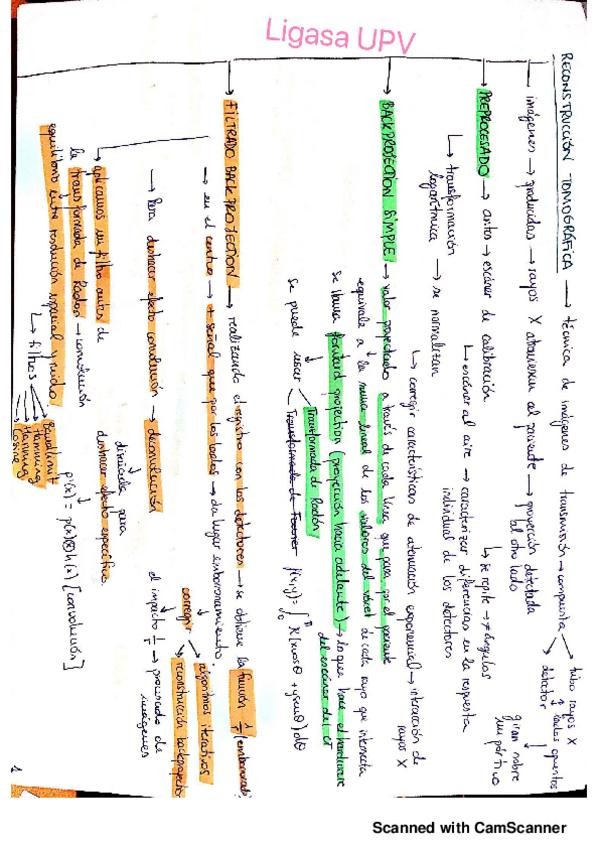 Ligasa UPV
RECONSTRUCCIÓN TOMOGRÁFICA → técnica de imágenes de transmisión → compuesta → tubo rayos X
↕ lados opuestos
→ detector
imágenes → producidas → rayos X atraviesan al paciente → proyección detectada
al otro lado
→ se repite → ≠ ángulos
→ PREPROCESADO → antes → escáner de calibración
→ escáner al aire → caracterizar diferencias en la respuesta
individual de los detectores
→ transformación
logarítmica → se normalizan
→ corregir características de atenuación exponencial → interacción de
rayos X
→ BACKPROJECTION SIMPLE → valor proyectado a través de cada línea que pasa por el paciente
equivale a la suma lineal de los valores del vóxel de cada rayo que intersecta
se llama forward projection (proyección hacia adelante) → lo que hace el hardware
del escáner del CT
se puede usar
Transformada de Radón
Transformada de Fourier
→ FILTRADO BACKPROJECTION → realizando el registro con los detectores → se obtiene la función 1/r
→ en el centro → + señal que por los lados → da lugar emborronamiento.
corregir
→ algoritmos iterativos
→ reconstrucción backprojection
→ Para deshacer efecto convolución → deconvolución
el impacto 1/r → procesado de
imágenes
→ aplicamos un filtro antes de
la transformada de Radon → convolución
diseñada para
deshacer efecto específico.
p'(x) = p(x)⊗h(x) [convolución]
equilibrio entre resolución espacial y ruido.
→ filtros
Hamming
Cosine
1
Scanned with CamScanner